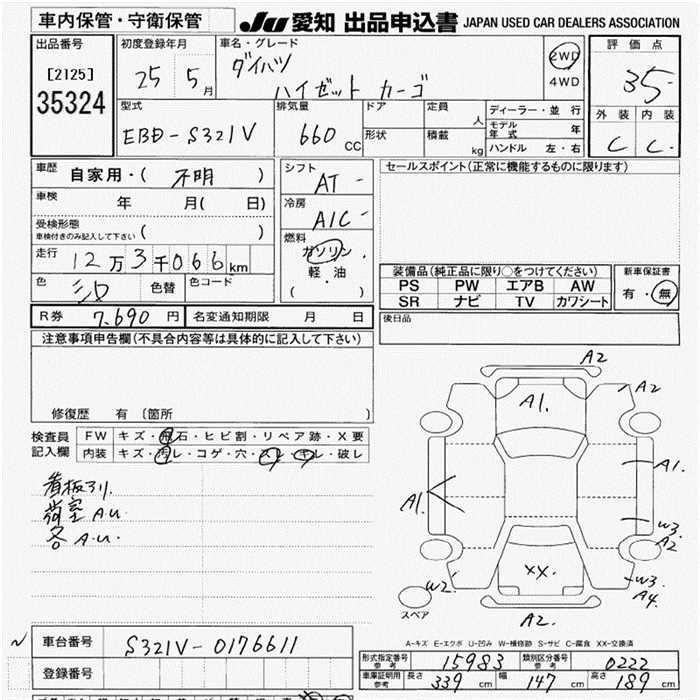 車内保管・守衛保管
JU 愛知 出品申込書 JAPAN USED CAR DEALERS ASSOCIATION
出品番号
[2125]
35324
初度登録年月
25 5月
車名・グレード
ダイハツ
ハイゼット カーゴ
2WD
4WD
評価点
35
外装 内装
C C
型式
EBD-S321V
排気量
660 CC
ドア
形状
定員 人
積載 kg
ディーラー・並行
モデル年式 年
ハンドル 左・右
車歴
自家用・( 不明 )
車検
年 月( 日)
受検形態
車検付きのみ記入して下さい ( )
走行
12万3千066km
色
シロ
色替
色コード
シフト
AT
冷房
A/C
燃料
ガソリン
軽・油
( )
セールスポイント(正常に機能するものに限ります)
装備品(純正品に限り○をつけてください)
PS PW エアB AW
SR ナビ TV カワシート
新車保証書
有・無
後日品
R券 7,690円
名変通知期限 月 日
注意事項申告欄(不具合内容等は具体的に記入して下さい)
修復歴 有 [箇所 ]
検査員記入欄
FW キズ・飛石・ヒビ割・リペア跡・X要
内装 キズ・汚レ・コゲ・穴・スレ・キレ・破レ
看板アリ.
荷室 A.U.
各 A.U.
A2
A1.
A2
A1.
A1.
W3
A2
W2
XX.
W3.
A4.
A2.
スペア
A-キズ E-エクボ U-凹み W-補修跡 S-サビ C-腐食 XX-交換済
車台番号 S321V-0176611
登録番号
型式指定番号 参考 15983
類別区分番号 参考 0222
車庫証明用 参考 長さ 339cm 幅 147cm 高さ 189cm